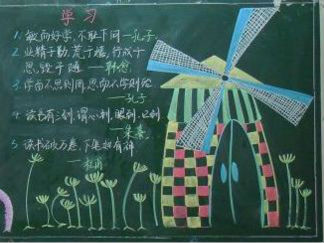 学习
1. 敏而好学，不耻下问—孔子。
2. 业精于勤，荒于嬉，行成于
思，毁于随 —韩愈
3. 学而不思则罔，思而不学则殆
—孔子
4. 读书有三到，谓心到，眼到，口到
—朱熹。
5. 读书破万卷，下笔如有神
—杜甫